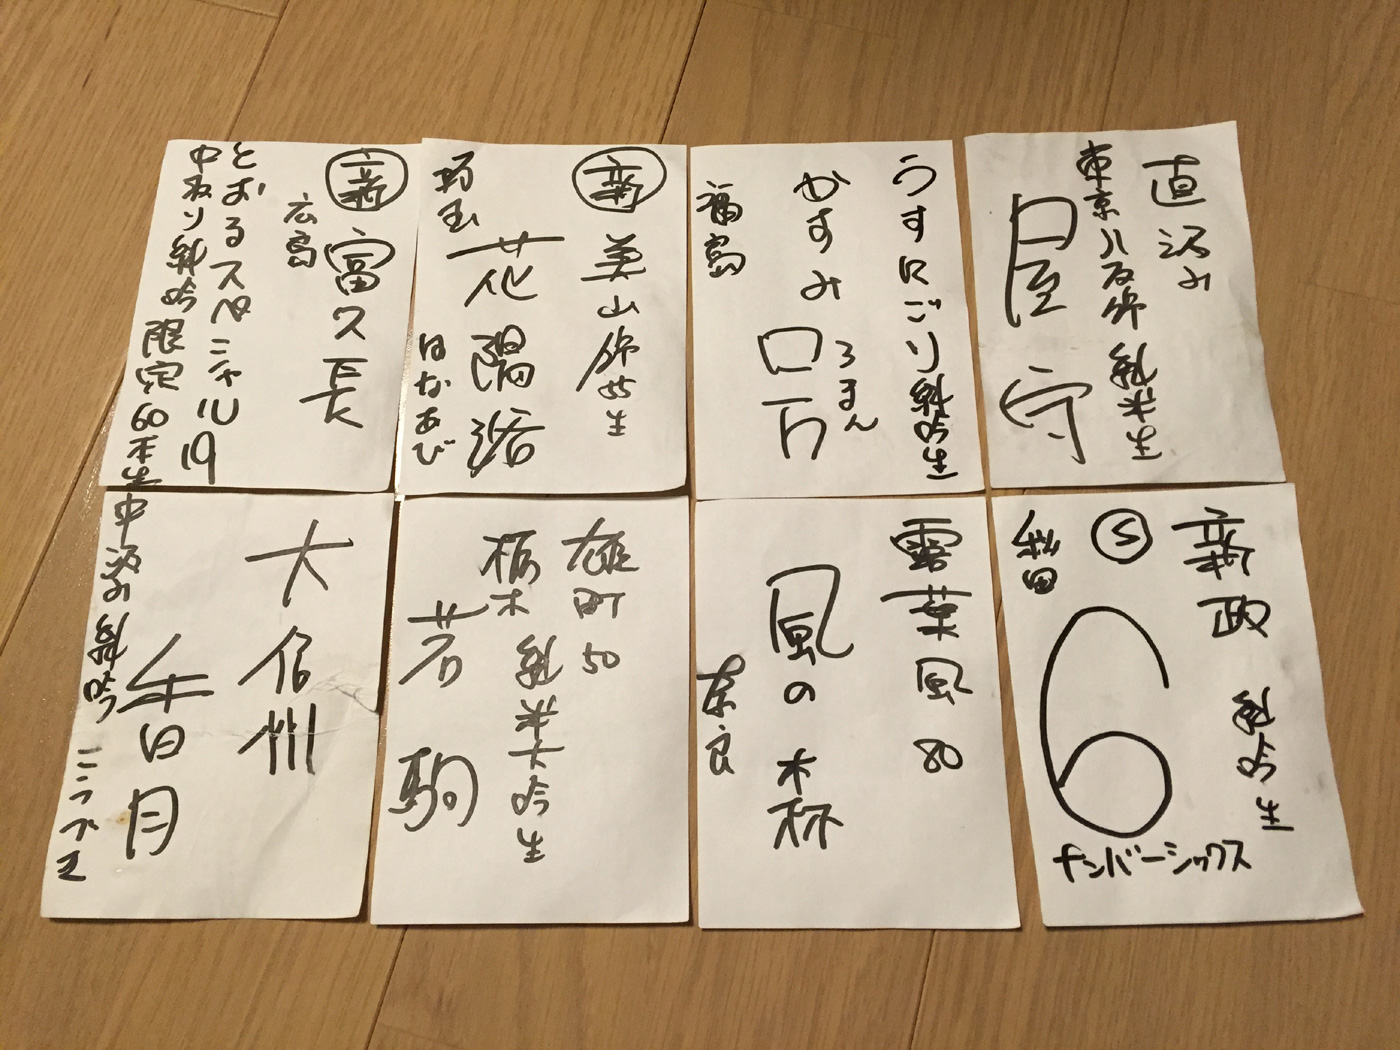 直汲み
東京八反錦 純米生
屋守
うすにごり純吟生
かすみロ万
ろまん
福島
新 美山錦55生
埼玉
花陽浴
はなあび
新 富久長
広島
とおるスペシャル19
中汲み純吟限定60本生
新政 純吟生
S
秋田
6
ナンバーシックス
露葉風80
風の森
奈良
雄町50
栃木 純米大吟生
若駒
大信州
香月
中汲み純吟